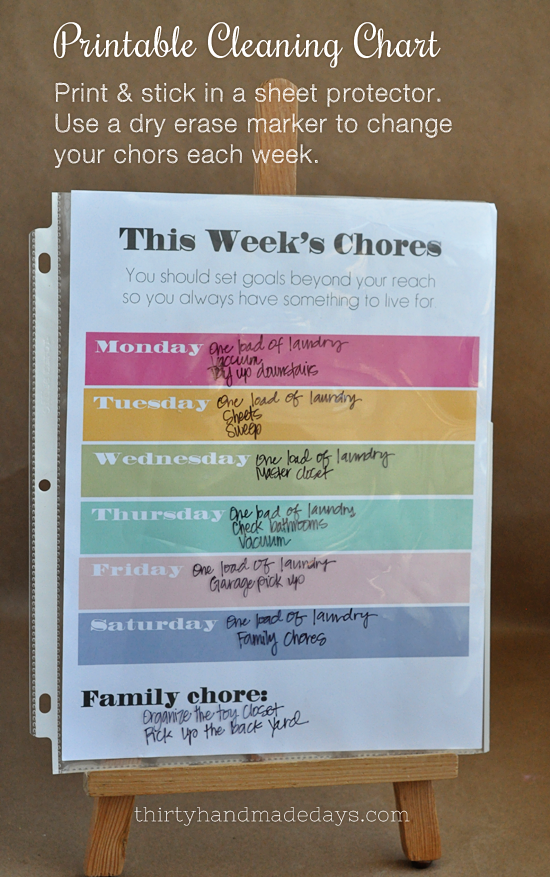 Printable Cleaning Chart
Print & stick in a sheet protector.
Use a dry erase marker to change
your chors each week.
This Week's Chores
You should set goals beyond your reach
so you always have something to live for.
Monday One load of laundry
Vacuum
up downstairs
Tuesday One load of laundry
Sheets
Sweep
Wednesday One load of laundry
Master closet
Thursday One load of laundry
Check bathrooms
Vacuum
Friday One load of laundry
Garage pick up
Saturday One load of laundry
Family Chores
Family chore:
Organize the toy closet
Pick up the back yard
thirtyhandmadedays.com